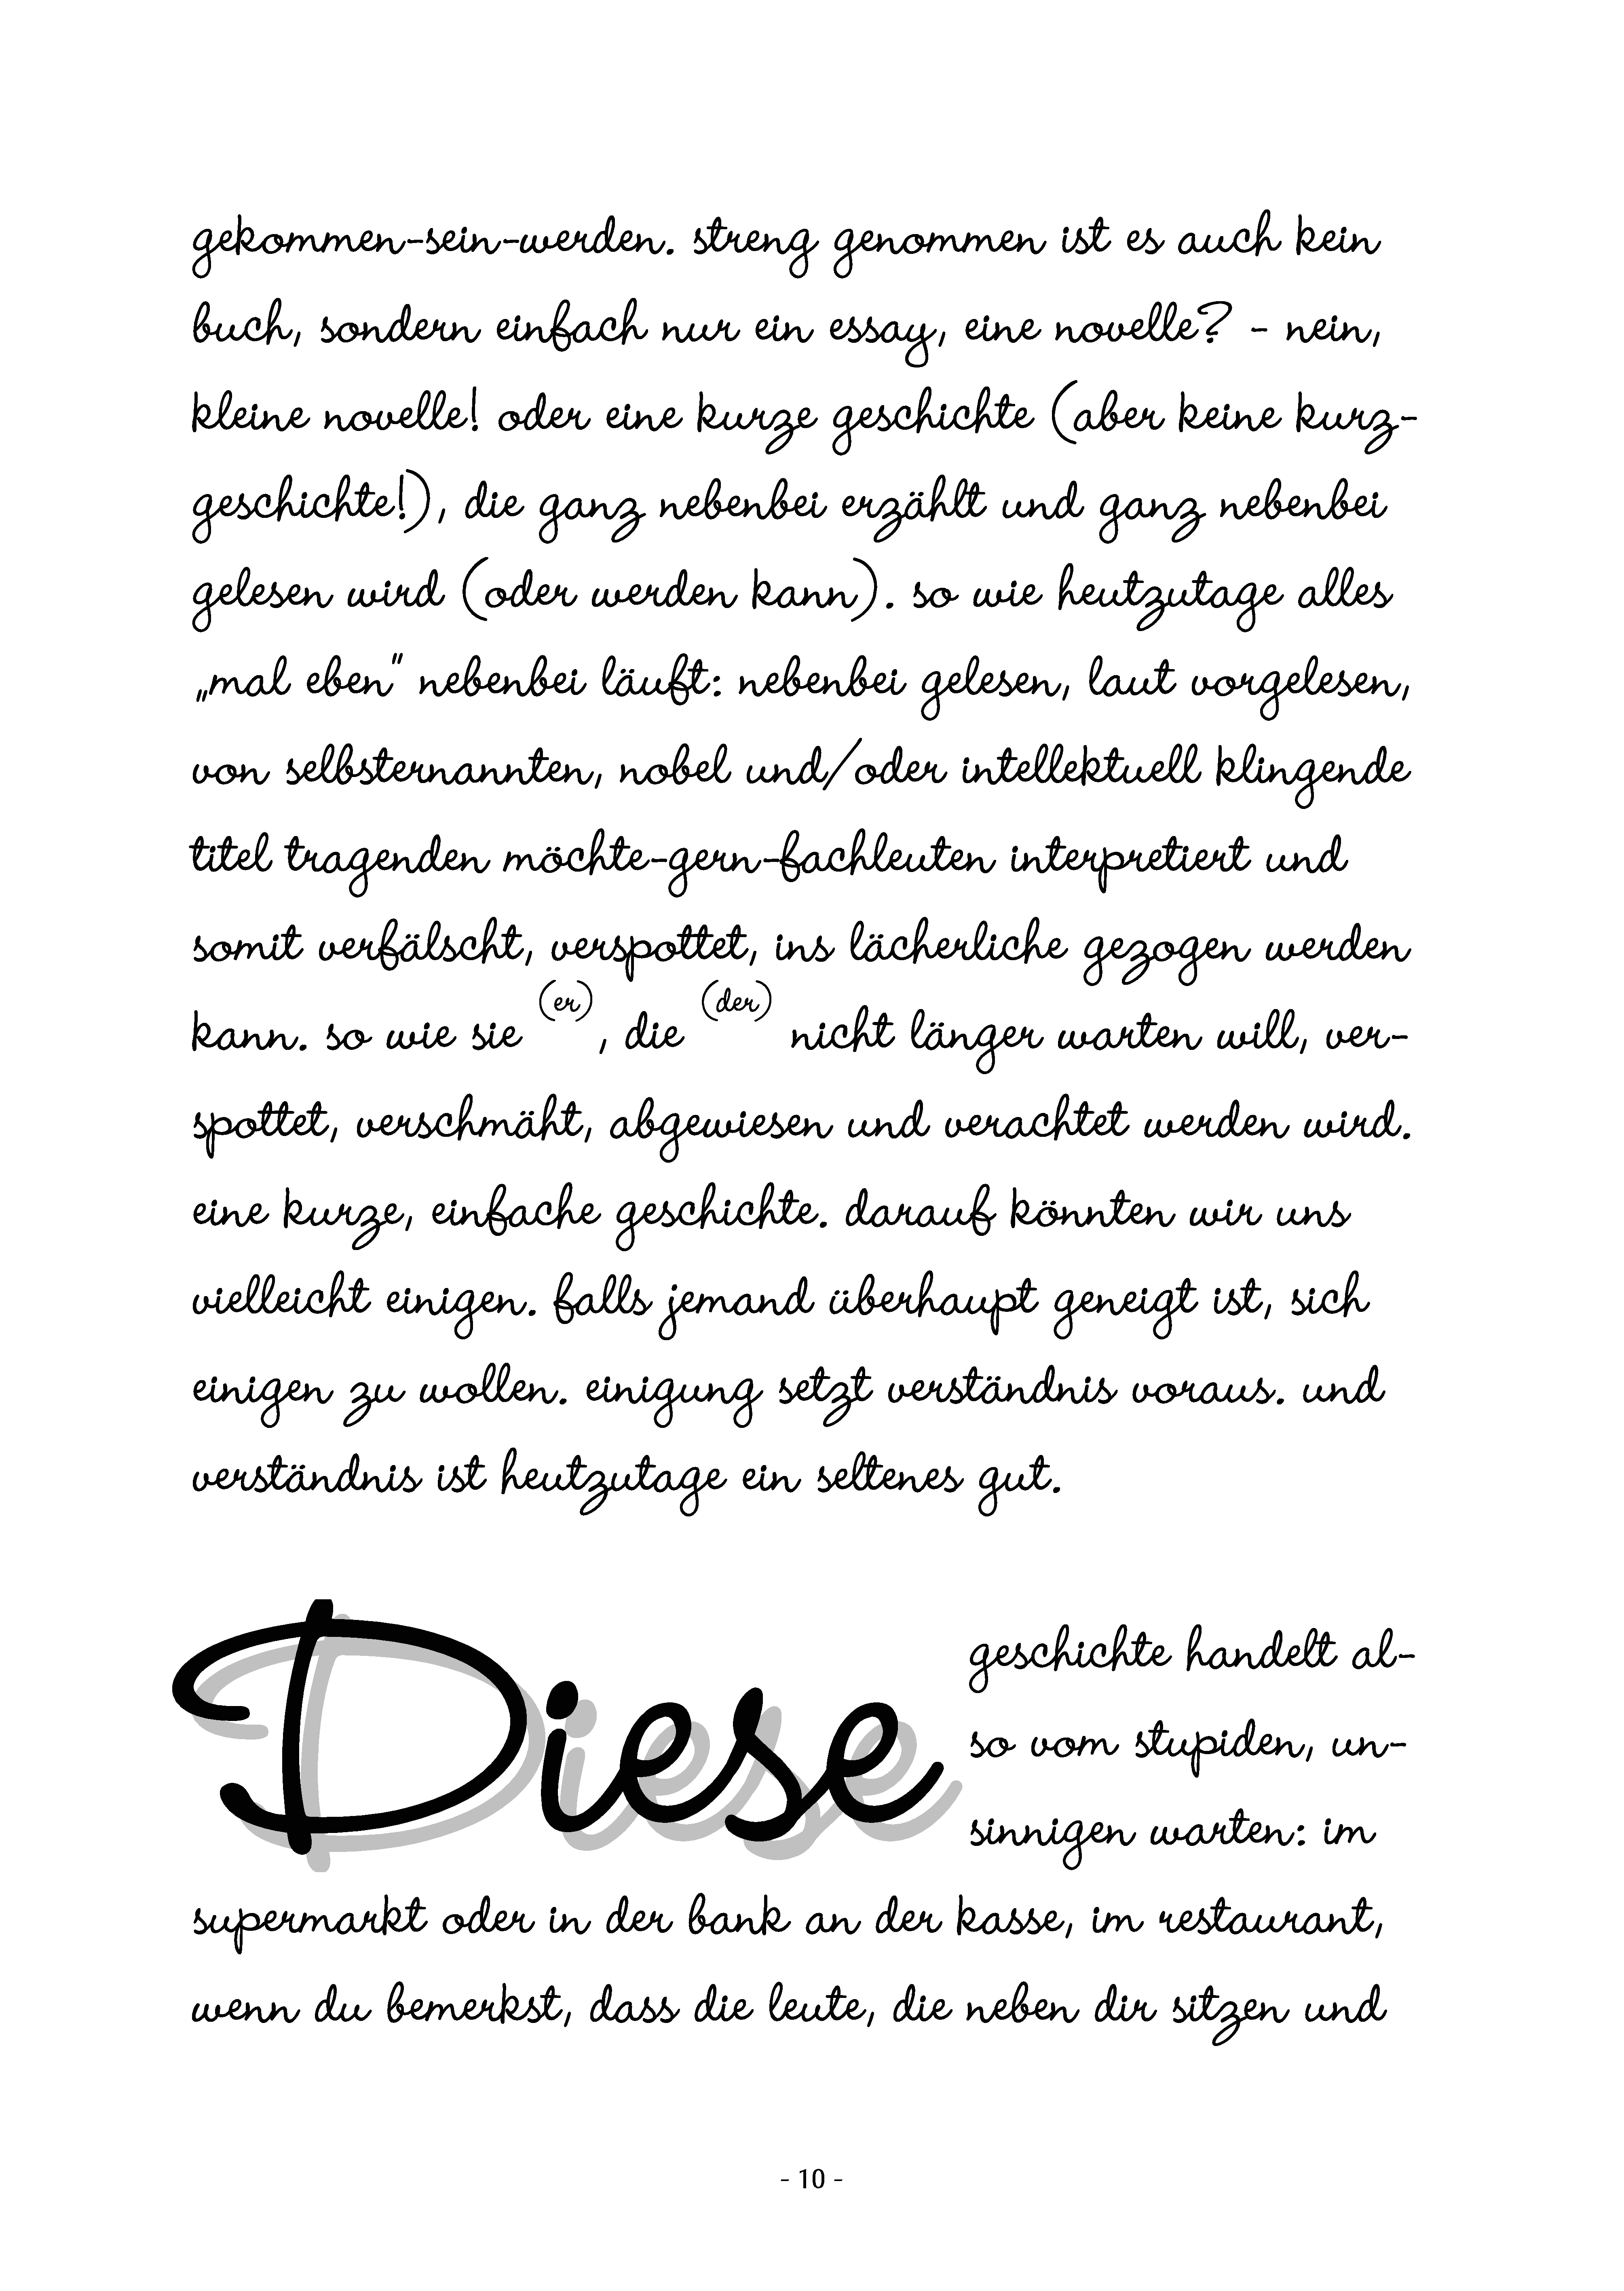 gekommen-sein-werden. streng genommen ist es auch kein
buch, sondern einfach nur ein essay, eine novelle? - nein,
kleine novelle! oder eine kurze geschichte (aber keine kurz-
geschichte!), die ganz nebenbei erzählt und ganz nebenbei
gelesen wird (oder werden kann). so wie heutzutage alles
„mal eben" nebenbei läuft: nebenbei gelesen, laut vorgelesen,
von selbsternannten, nobel und/oder intellektuell klingende
titel tragenden möchte-gern-fachleuten interpretiert und
somit verfälscht, verspottet, ins lächerliche gezogen werden
kann. so wie sie (er), die (der) nicht länger warten will, ver-
spottet, verschmäht, abgewiesen und verachtet werden wird.
eine kurze, einfache geschichte. darauf könnten wir uns
vielleicht einigen. falls jemand überhaupt geneigt ist, sich
einigen zu wollen. einigung setzt verständnis voraus. und
verständnis ist heutzutage ein seltenes gut.
Diese geschichte handelt al-
so vom stupiden, un-
sinnigen warten: im
supermarkt oder in der bank an der kasse, im restaurant,
wenn du bemerkst, dass die leute, die neben dir sitzen und
- 10 -